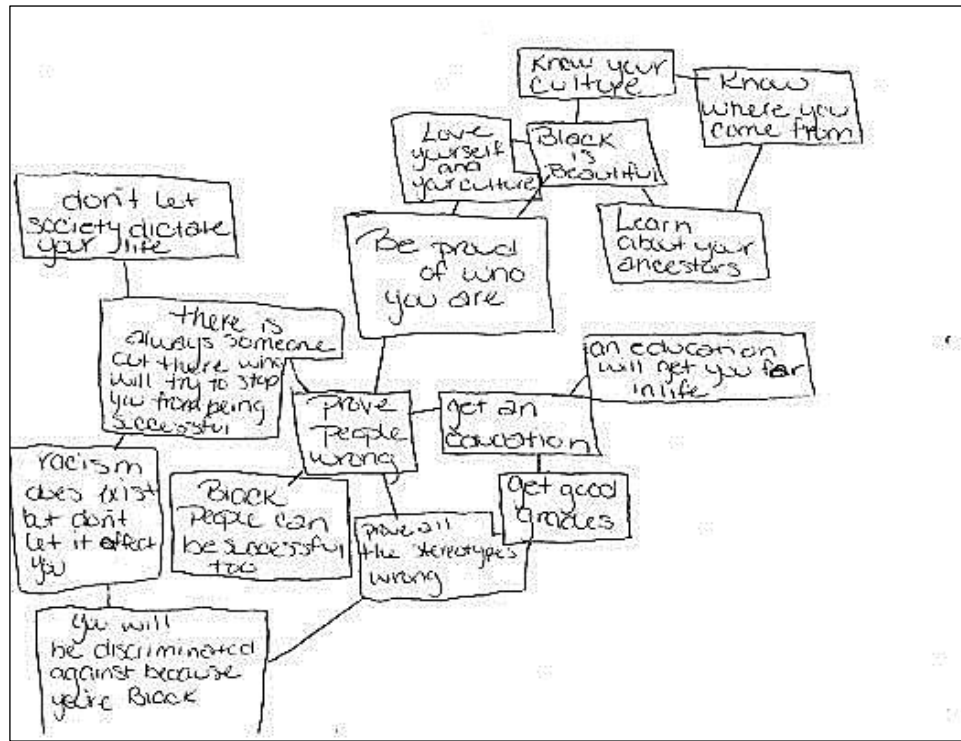 Know your
culture
Know
where you
come from
Love
yourself
and
your culture
Black
is
Beautiful
don't let
society dictate
your life
Learn
about your
ancestors
Be proud
of who
you are
there is
always someone
out there who
will try to stop
you from being
successful
an education
will get you far
in life
Prove
People
wrong
get an
education
racism
does exist
but don't
let it affect
you
Black
People can
be successful
too
get good
grades
prove all
the stereotypes
wrong
you will
be discriminated
against because
you're Black